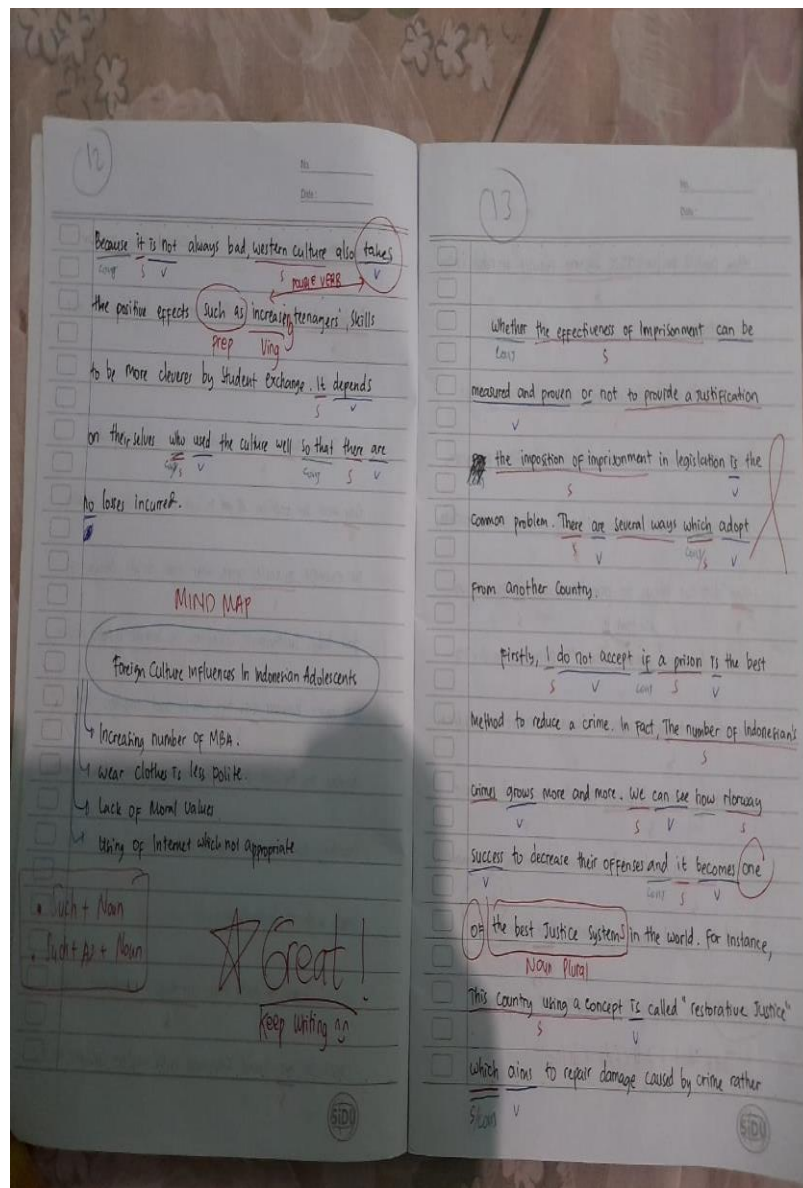 12
No.
Date:
Because it is not always bad, western culture also takes
conj S V S V
DOUBLE VERB
the positive effects such as increasing teenagers', skills
Prep Ving
to be more cleverer by student exchange. It depends
S V
on their selves who used the culture well so that there are
conj/S V conj S V
no losses incurred.
MIND MAP
Foreign Culture Influences In Indonesian Adolescents
Increasing number of MBA.
wear clothes is less polite.
Lack of Moral values
Using of Internet which not appropriate
Such + Noun
Such + As + Noun
Great!
Keep writing ^^
SIDU
13
No.
Date:
Whether the effectiveness of Imprisonment can be
conj S
measured and proven or not to provide a justification
V
the impostion of imprisonment in legislation is the
S V
common problem. There are several ways which adopt
S V conj/S V
from another country.
Firstly, I do not accept if a prison is the best
S V conj S V
method to reduce a crime. In fact, The number of Indonesian's
S
crimes grows more and more. We can see how Norway
V S V S
success to decrease their offenses and it becomes one
V conj S V
of the best Justice systems in the world. For instance,
Noun Plural
This country using a concept is called "restorative Justice"
S V
which aims to repair damage caused by crime rather
S/conj V
SIDU